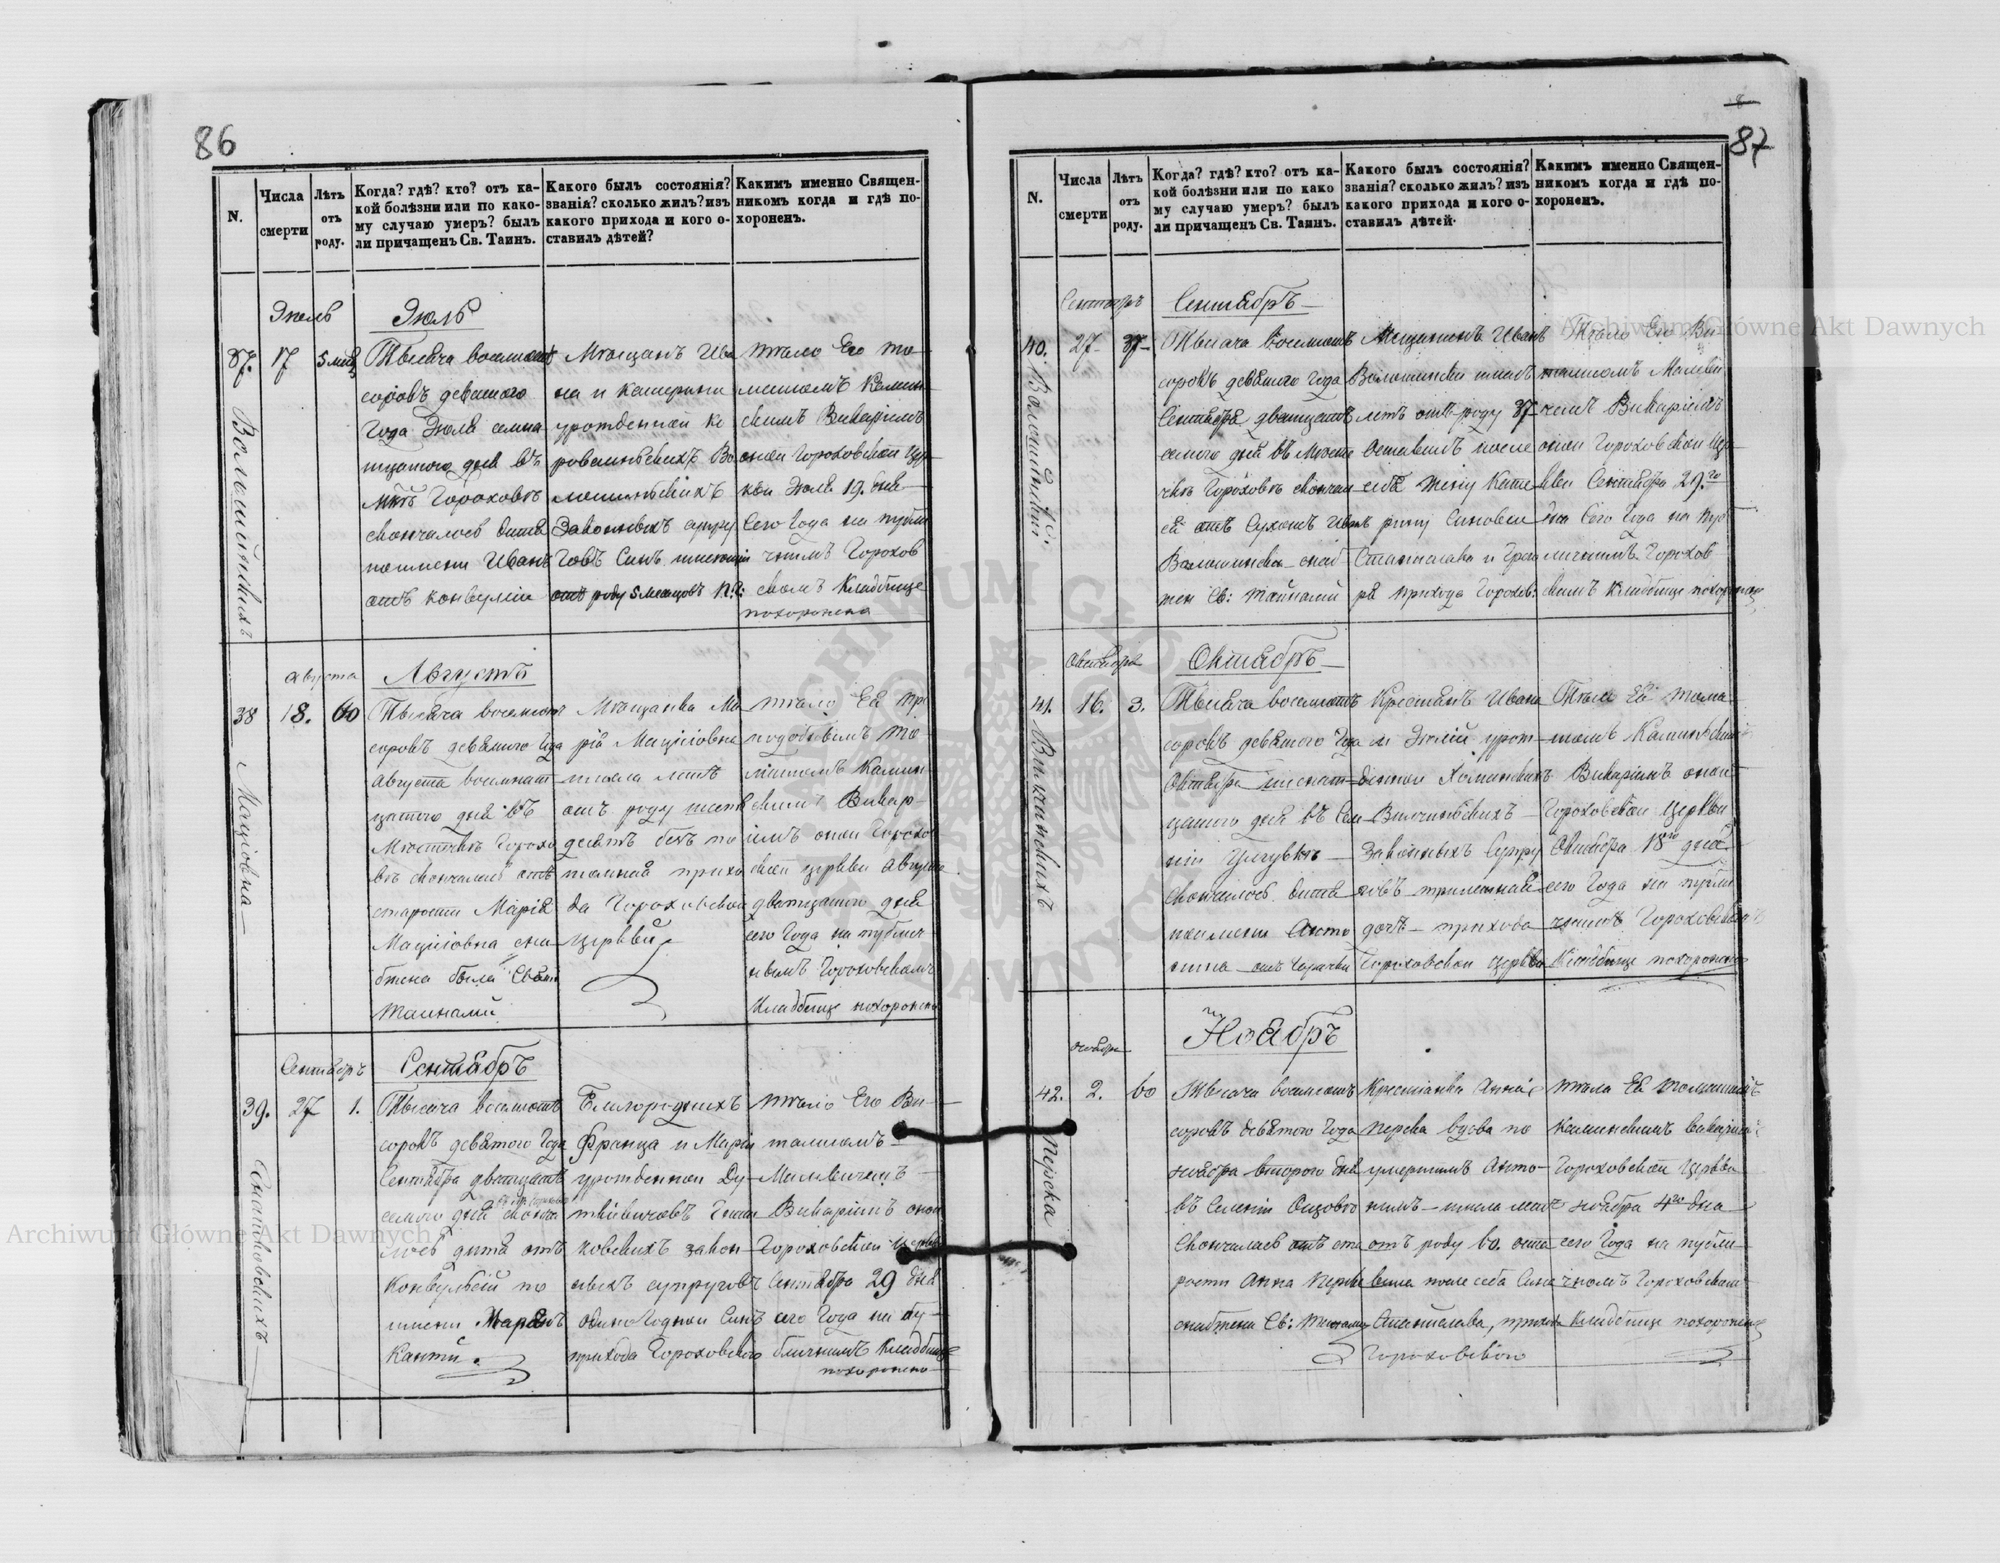 86
N.
Числа смерти
Лѣтъ отъ роду.
Когда? гдѣ? кто? отъ ка-
кой болѣзни или по како-
му случаю умеръ? былъ
ли причащенъ Св. Таинъ.
Какого былъ состоянія?
званія? сколько жилъ? изъ
какого прихода и кого о-
ставилъ дѣтей?
Какимъ именно Священ-
никомъ когда и гдѣ по-
хороненъ.
Июль
37. 17
Волошинскихъ
Тысяча восемсотъ
сорокъ девятого
Года Июля семна
цатого дня въ
Мѣст Гороховѣ
скончалось дитя
поимени Иванъ
отъ конвулсіи
Мѣщанъ Ива
на и Катерины
урожденной Ко
Волошинскихъ
Законныхъ супру
говъ Сынъ имеющій
отъ роду 5 месяцовъ
тѣло Его То-
машомъ Камин-
скимъ Викаріемъ
оной Гороховской Цер
кви Июля 19. дня
Сего Года на публи
чнымъ Горохов
скомъ Кладбище
похоронено
Августа
Августъ
38 18. 60
Маціовна
Тысяча восемсотъ
сорокъ девятого Года
Августа восемнат
цатого дня въ
Местечкѣ Горохо
вѣ скончалась отъ
старости Марія
Маціовна сна
бжена была Свят
Тайнами
Мѣщанка Ма
рія Маціовна
имела летъ
отъ роду шесть
десятъ безъ по
томная прихо
да Гороховской
церкви
тѣло Ея пре
подобнымъ То-
машомъ Камин-
скимъ Викар-
іемъ оной Горохо
ской церкви Августа
двадцатого дня
сего Года на публич
нымъ Гороховскомъ
Кладбище похоронено
Сентябръ
Сентябръ
39. 27 1.
Тысяча восемсотъ
сорокъ девятого Года
Сентября двадцать
семого дня сконча
лось дитя отъ
Конвульсій по
имени
Канти.
Благородныхъ
Франца и Маріи
урожденной Ду-
законныхъ супруговъ
одногодной Сынъ
прихода Гороховского
тѣло Его Ви-
талисомъ
Малевичемъ
Викаріемъ оной
Гороховской церкви
Сентября 29 дня
сего Года на пу-
бличнымъ Кладбище
похоронено
87
N.
Числа смерти
Лѣтъ отъ роду.
Когда? гдѣ? кто? отъ ка-
кой болѣзни или по како
му случаю умеръ? былъ
ли причащенъ Св. Таинъ.
Какого былъ состоянія?
званія? сколько жилъ? изъ
какого прихода и кого о-
ставилъ дѣтей.
Какимъ именно Священ-
никомъ когда и гдѣ по-
хороненъ.
Сентябръ
Сентябръ
40. 27 37
Волошинскій
Тысяча восемсотъ
сорокъ девятого Года
Сентября двадцать
семого дня въ Месте
чкѣ Гороховѣ скончал
ся отъ Сухотъ Иванъ
Волошинскій снаб
жен Св: Тайнами
Мещанинъ Иванъ
Волошинскій имелъ
летъ отъ роду 37
оставилъ после
себя жену Кате
рину Сыновей
Станислава и Григо
ря прихода Горохов:
Тѣло Его Ви-
талисомъ Малеви
чемъ Викаріемъ
оной Гороховской Цер-
кви Сентября 29.го
дня Сего Года на пуб
личнымъ Горохов
скимъ Кладбище похоронено
Октября
Октябръ
41. 16. 3.
Тысяча восемсотъ
сорокъ девятого Года
Октября шеснат-
цатого дня въ Сел
скончалось дитя
поимени Анто
нина отъ горячки
Крестьянъ Ивана
и Юлии урож-
денной
Законныхъ Супру
говъ трилетная
дочь прихода
Гороховской церкви
Тѣло Ея Тома-
шомъ Каминским
Викаріемъ оной
Гороховской Церкви
Октября 18го дня
сего Года на публи
чнымъ Гороховскомъ
Кладбище похоронено
Ноября
Ноябръ
42. 2. 60
Перска
Тысяча восемсотъ
сорокъ девятого Года
Ноября второго дня
въ Селеніи
Скончалась отъ ста
рости Анна Перска
снабжена Св: Тайнами
Крестьянка Анна
Перска вдова по
умершимъ Анто-
нимъ имела летъ
отъ роду 60. оста
вила после себя Сына
Станислава, прихода
Гороховского
тѣла Ея Томашомъ
Каминскимъ Викаріемъ
Гороховской Церкви
Ноября 4го дня
сего Года на публи-
чномъ Гороховском
Кладбище похоронено
Archiwum Główne Akt Dawnych
Archiwum Główne Akt Dawnych